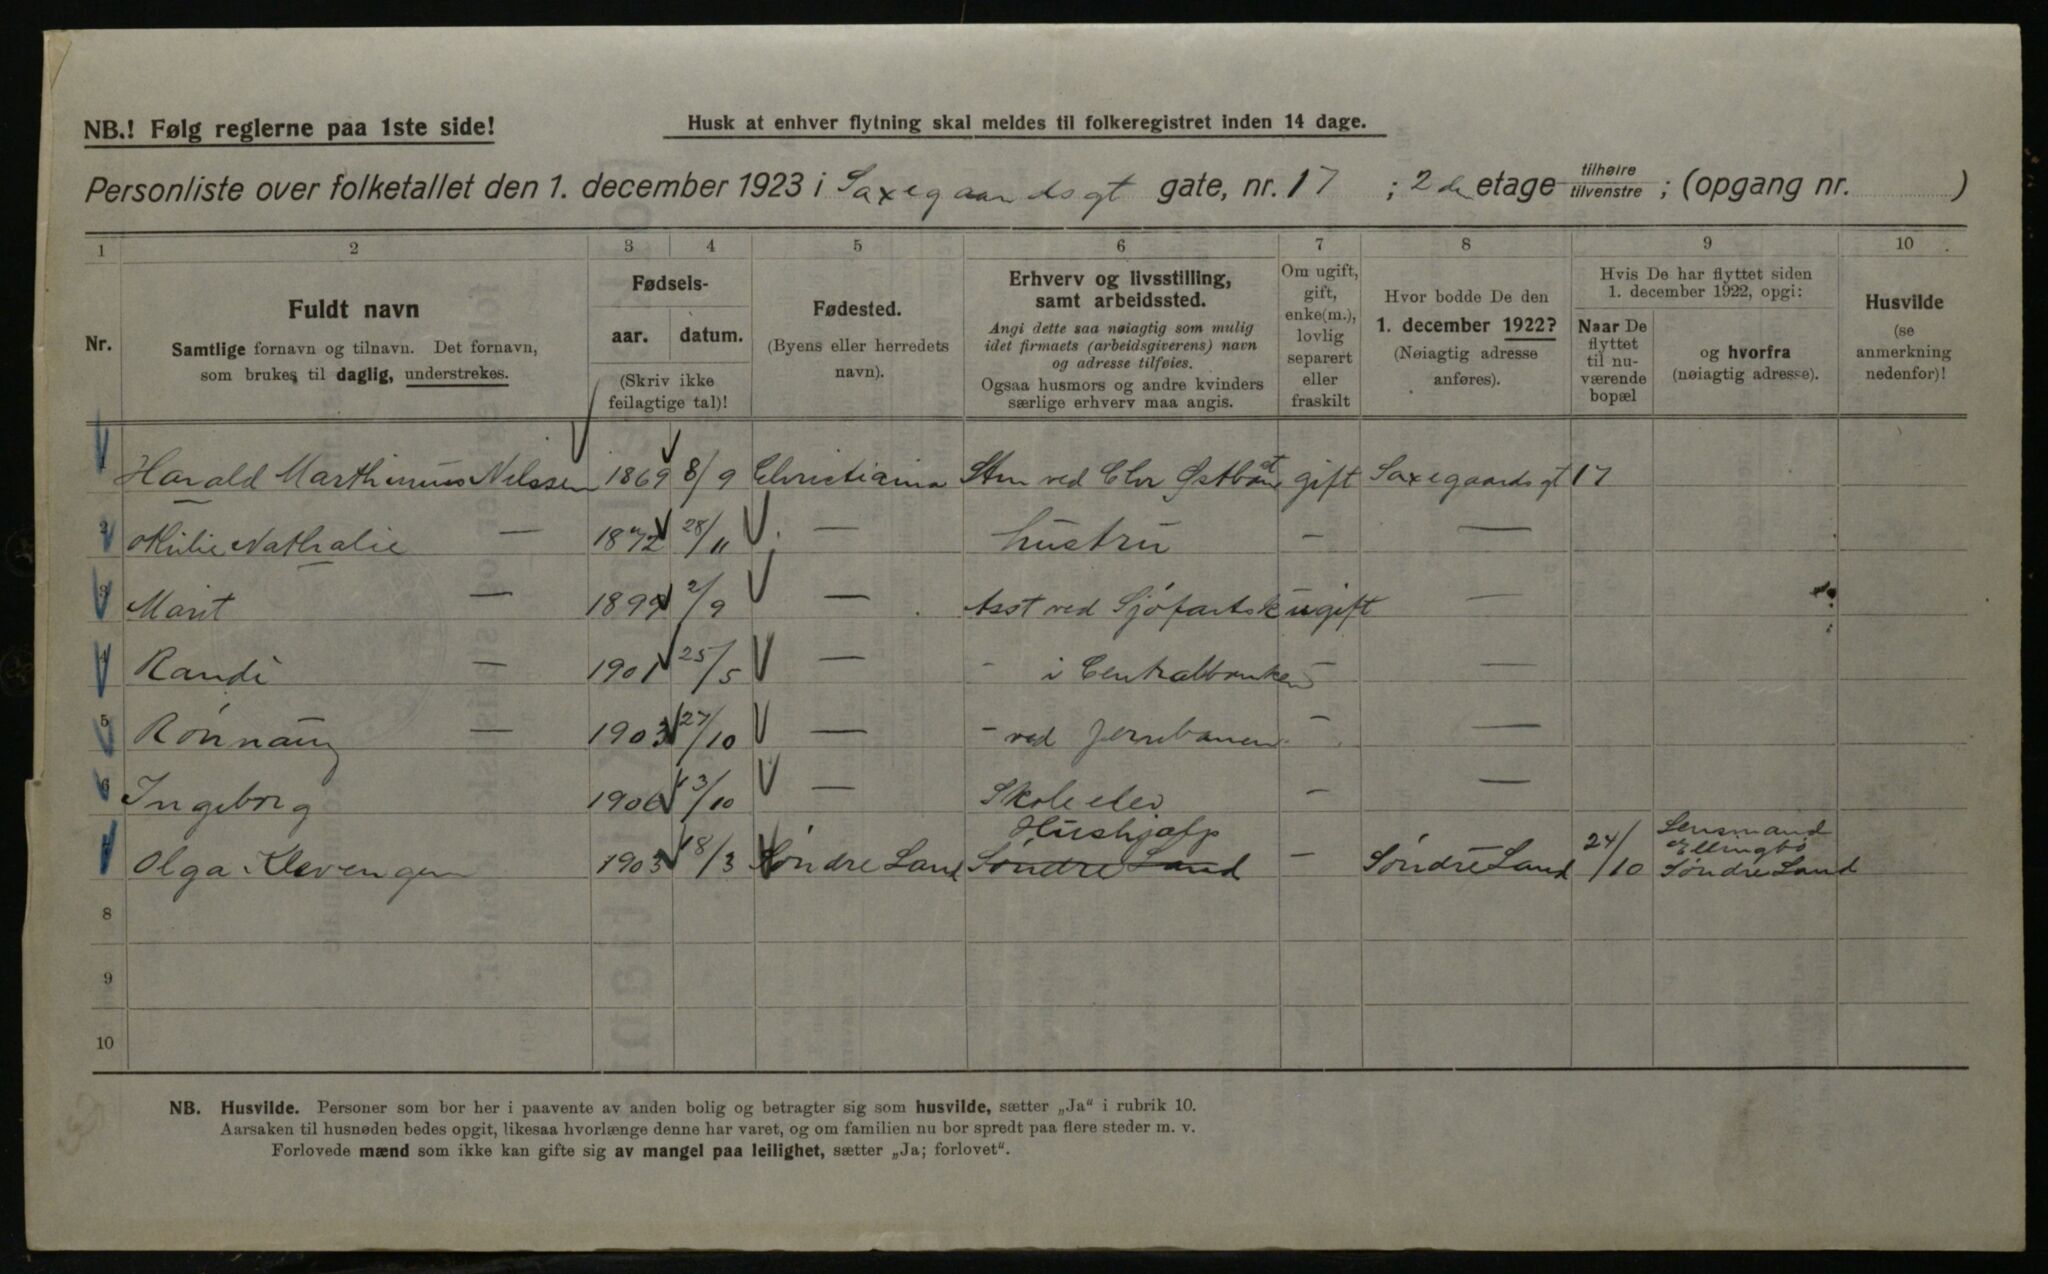 NB.! Følg reglerne paa 1ste side!
Husk at enhver flytning skal meldes til folkeregistret inden 14 dage.
Personliste over folketallet den 1. december 1923 i Saxegaardsgt gate, nr. 17 ; 2den etage tilhøire tilvenstre ; (opgang nr. )
1 2 3 4 5 6 7 8 9 10
Nr.
Fuldt navn
Samtlige fornavn og tilnavn. Det fornavn,
som brukes til daglig, understrekes.
Fødsels-
aar. datum.
(Skriv ikke
feilagtige tal)!
Fødested.
(Byens eller herredets
navn).
Erhverv og livsstilling,
samt arbeidssted.
Angi dette saa nøiagtig som mulig
idet firmaets (arbeidsgiverens) navn
og adresse tilføies.
Ogsaa husmors og andre kvinders
særlige erhverv maa angis.
Om ugift,
gift,
enke(m.),
lovlig
separert
eller
fraskilt
Hvor bodde De den
1. december 1922?
(Nøiagtig adresse
anføres).
Hvis De har flyttet siden
1. december 1922, opgi:
Naar De
flyttet
til nu-
værende
bopæl
og hvorfra
(nøiagtig adresse).
Husvilde
(se
anmerkning
nedenfor)!
Harald Marthinius Nilssen 1869 8/9 Christiania ved Chr gift Saxegaardsgt 17
2 Nathalie — 1872 28/11 — hustru - —
3 Marit — 1899 2/9 — Asst ved Sjøfartsk ugift —
4 Randi — 1901 25/5 — - i Centralbanken - —
5 Rønnaug — 1903 27/10 — - ved Jernbanen - —
6 Ingeborg 1906 13/10 — Skoleelev - —
Olga Klevengen 1903 18/3 Søndre Land Hushjælp Søndre Land - Søndre Land 24/10 Lensmand Ellingbø Søndre Land
8
9
10
NB. Husvilde. Personer som bor her i paavente av anden bolig og betragter sig som husvilde, sætter „Ja“ i rubrik 10.
Aarsaken til husnøden bedes opgit, likesaa hvorlænge denne har varet, og om familien nu bor spredt paa flere steder m. v.
Forlovede mænd som ikke kan gifte sig av mangel paa leilighet, sætter „Ja; forlovet“.